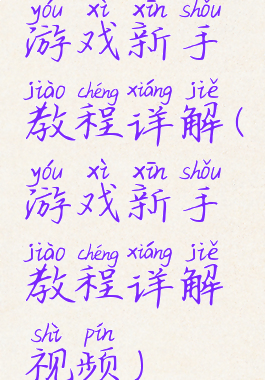 yóu xì xīn shǒu
游戏新手
jiào chéng xiáng jiě
教程详解(
yóu xì xīn shǒu
游戏新手
jiào chéng xiáng jiě
教程详解
shì pín
视频)